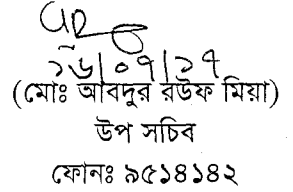 ১৬/০৭/১৭
(মোঃ আবদুর রউফ মিয়া)
উপ সচিব
ফোনঃ ৯৫১৪১৪২